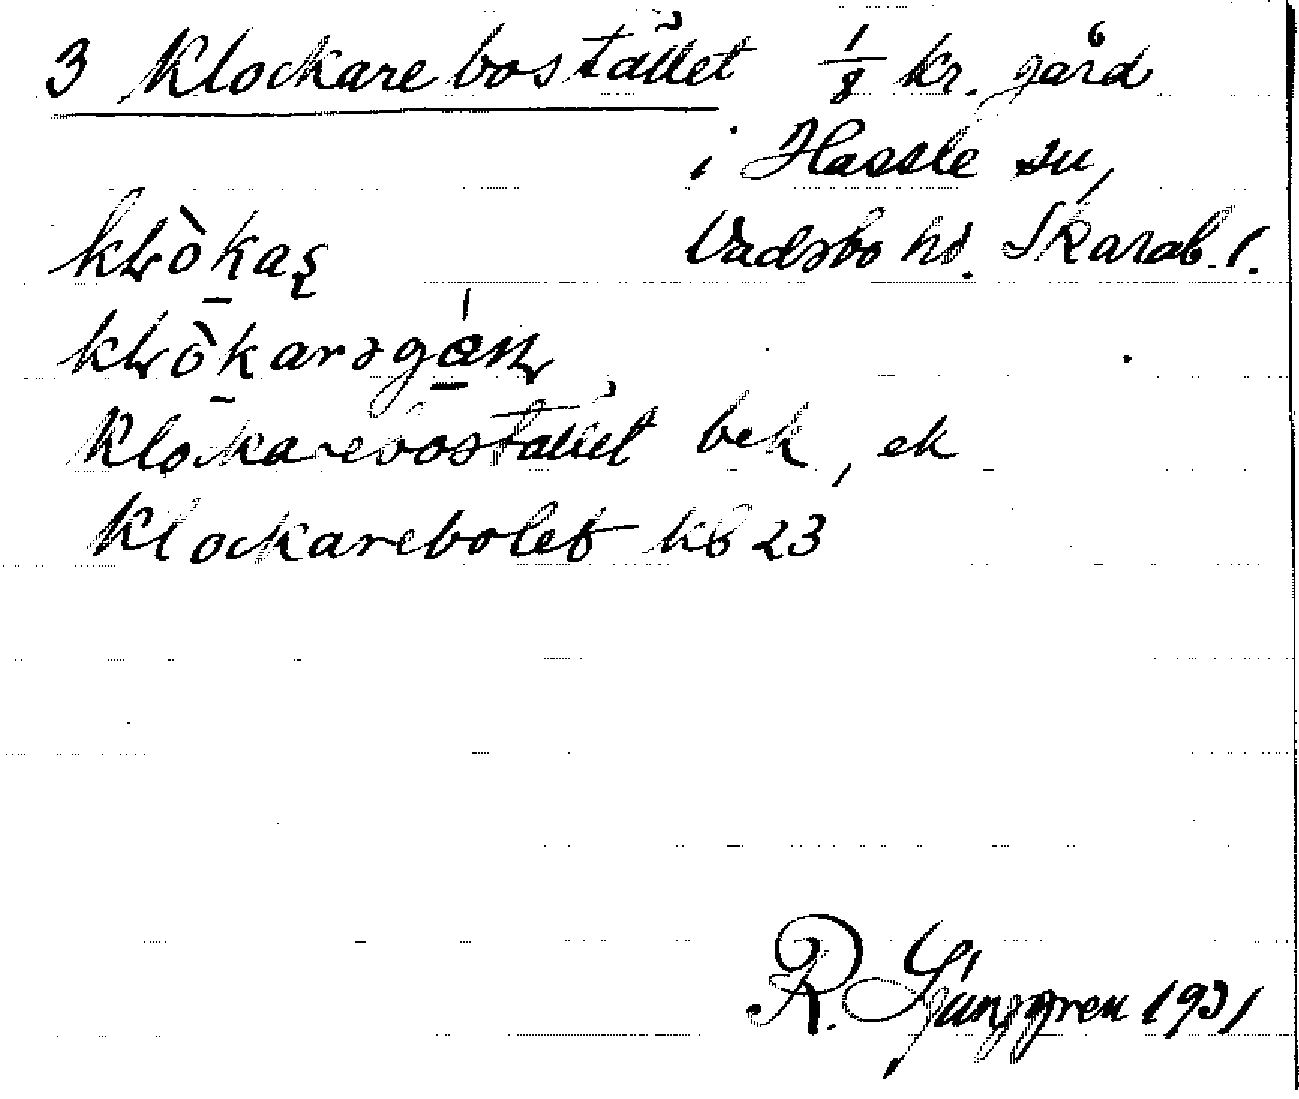 3 Klockarebostället 1/8 kr. gård
i Hassle sn,
Vadsbo hd. Skarab. l.
Klockarebostället bek, ek
Klockarebolet kb 23
R. Ljunggren 1931